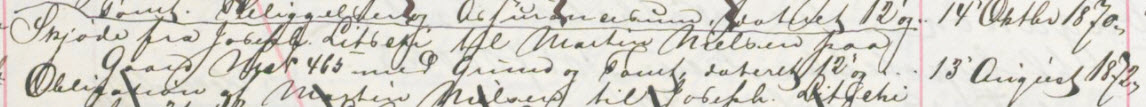 Tomt. Beliggelse og Assurancesum, dateret 12 og 14 Oktbr 1870,
Skjøde fra Joseph. Litschi til Martin Nielsen paa
Gaard No 465 med Grund og Tomt, dateret 12 og ... 13 August 1872,
Obligation af Martin Nielsen til Joseph. Litschi